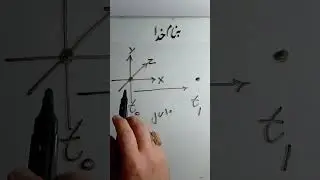 بنام خدا
Y
Z
X
t₀
t₁
t₀
t₁